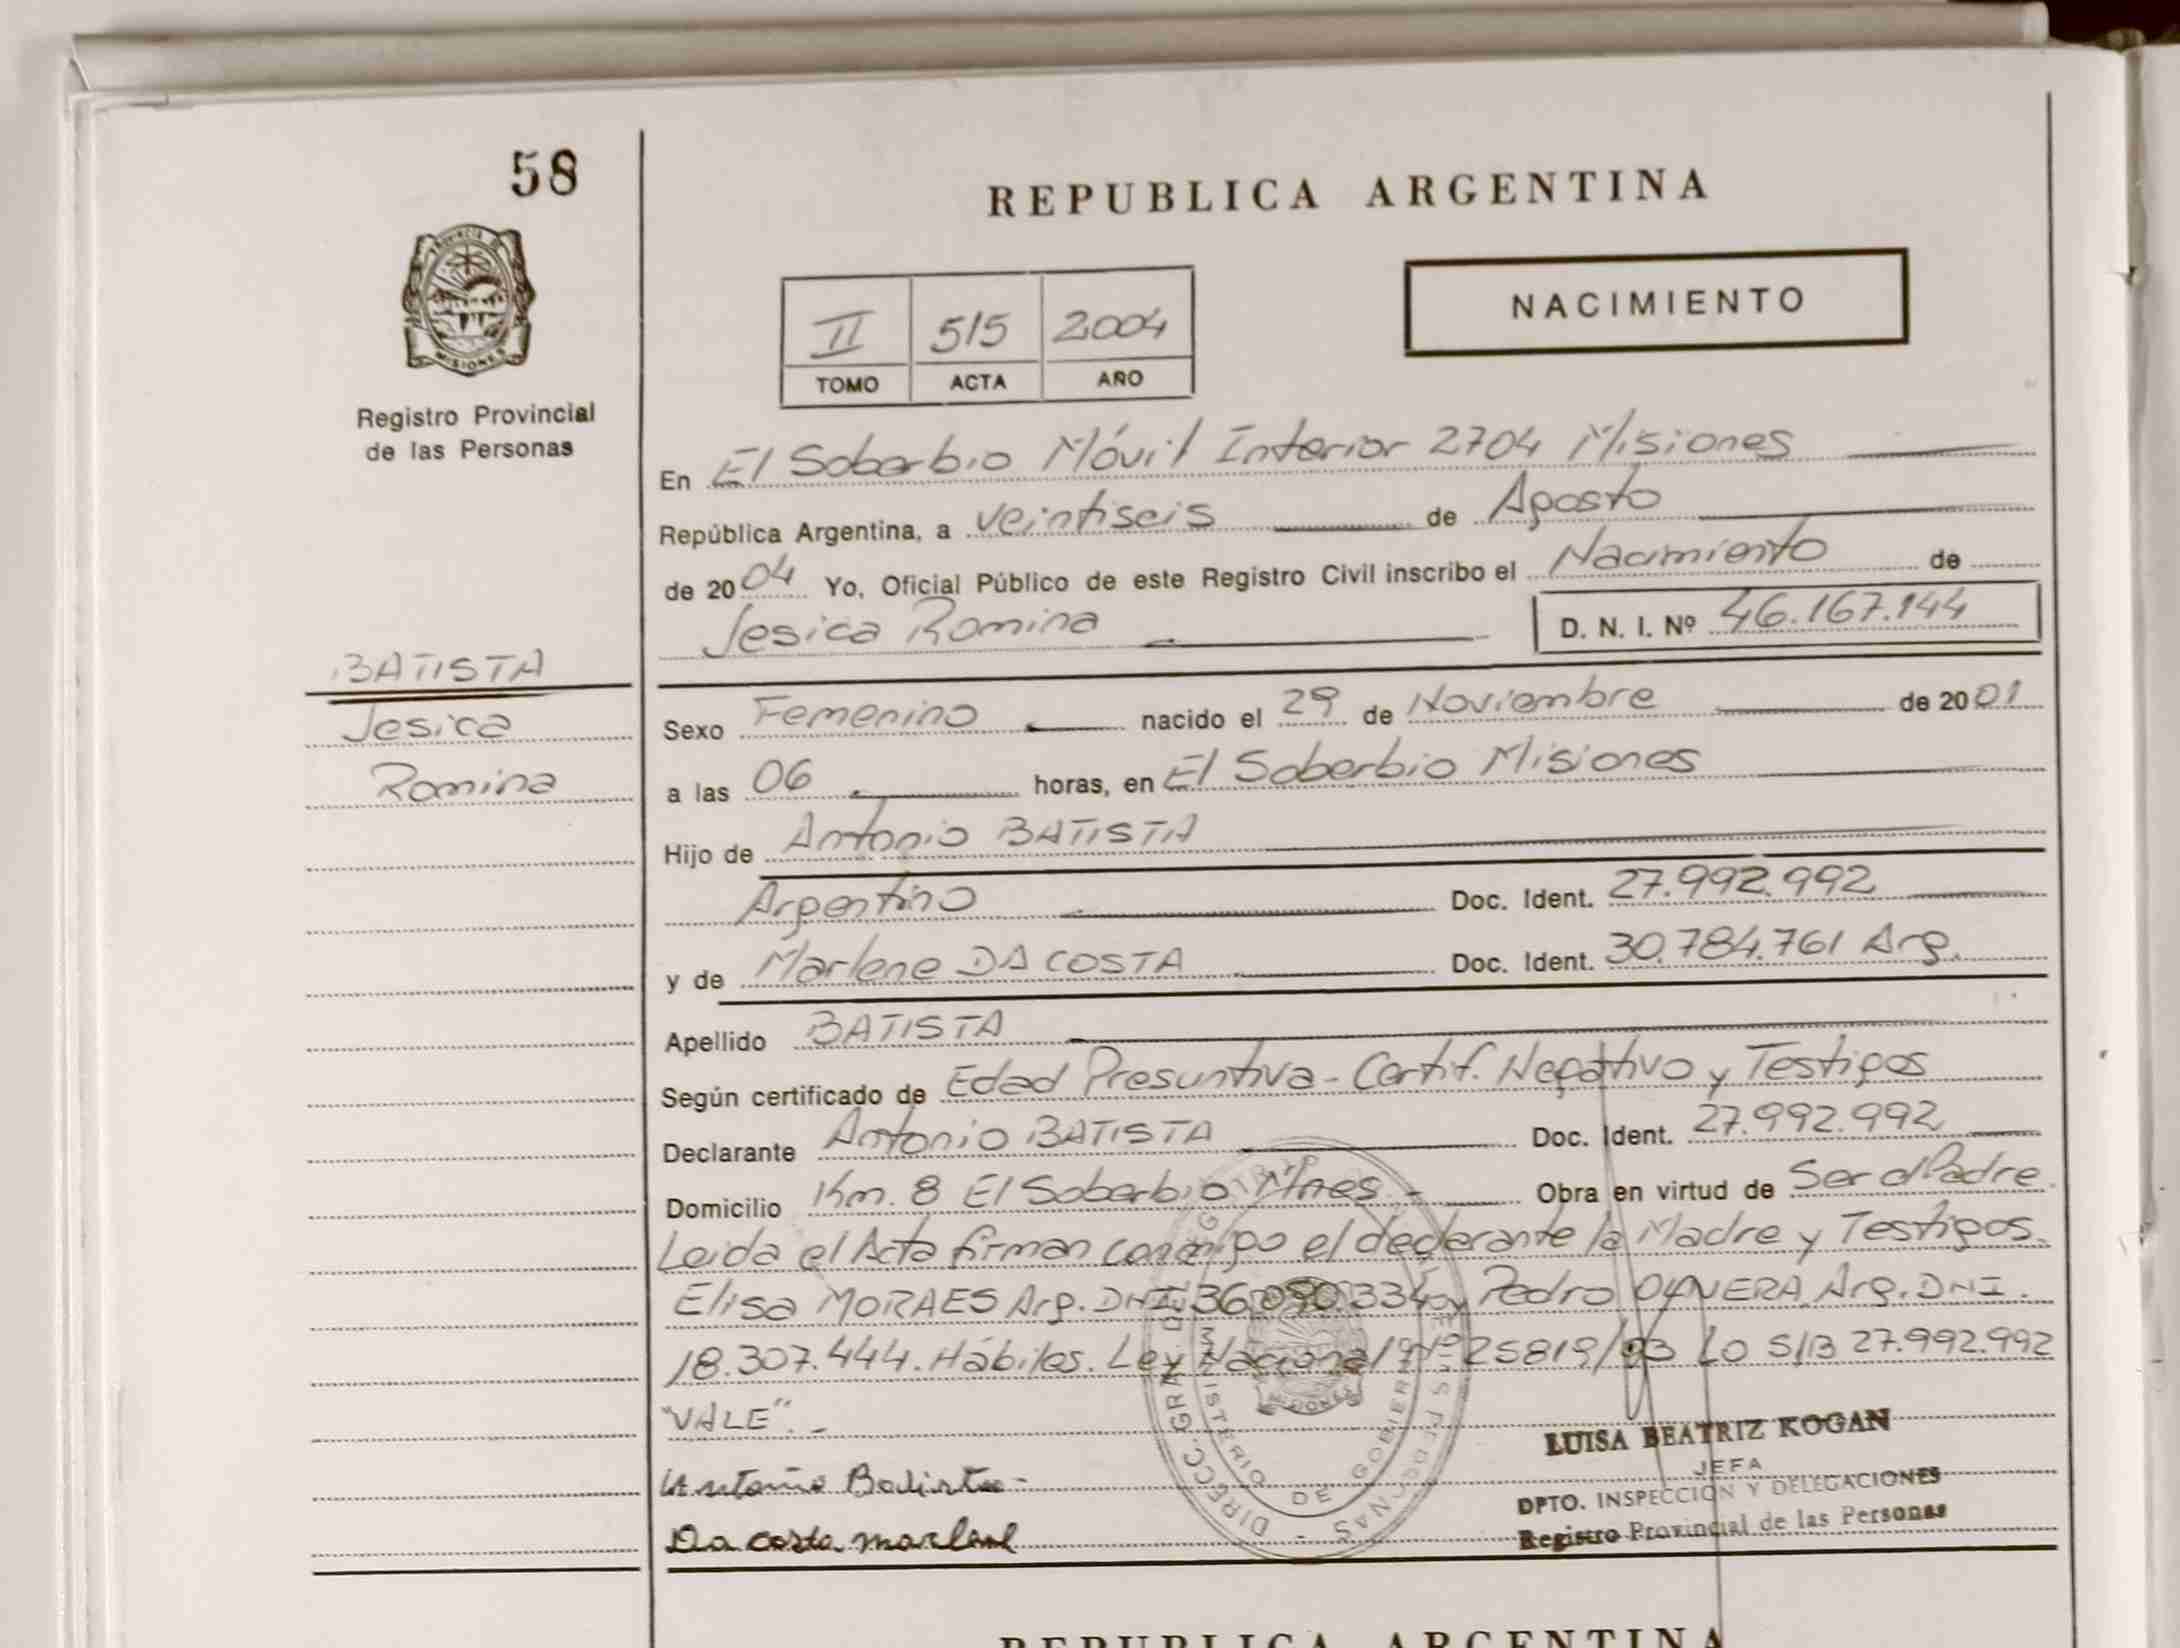 58
REPUBLICA ARGENTINA
PROVINCIA DE
MISIONES
Registro Provincial
de las Personas
NACIMIENTO
II 515 2004
TOMO ACTA AÑO
En El Soberbio Móvil Interior 2704 Misiones
República Argentina, a veintiseis de Agosto
de 2004 Yo, Oficial Público de este Registro Civil inscribo el Nacimiento de
Jesica Romina D. N. I. Nº 46.167.144
BATISTA
Jesica
Romina
Sexo Femenino nacido el 29 de Noviembre de 2001
a las 06 horas, en El Soberbio Misiones
Hijo de Antonio BATISTA
Argentino Doc. Ident. 27.992.992
y de Marlene DA COSTA Doc. Ident. 30.784.761 Arg.
Apellido BATISTA
Según certificado de Edad Presuntiva - Certif. Negativo y Testigos
Declarante Antonio BATISTA Doc. Ident. 27.992.992
Domicilio Km. 8 El Soberbio Mnes - Obra en virtud de Ser el Padre
Leida el Acta firman conmigo el declarante la Madre y Testigos.
Elisa MORAES Arg. DNI 36.090.334 y Pedro Arg. DNI.
18.307.444. Hábiles. Ley Nacional Nº 25819/03 Lo S/B 27.992.992
"VALE". -
Antonio Batista -
Da costa marlene
LUISA BEATRIZ KOGAN
JEFA
DPTO. INSPECCION Y DELEGACIONES
Registro Provincial de las Personas
MINISTERIO DE GOBIERNO
REPUBLICA ARGENTINA